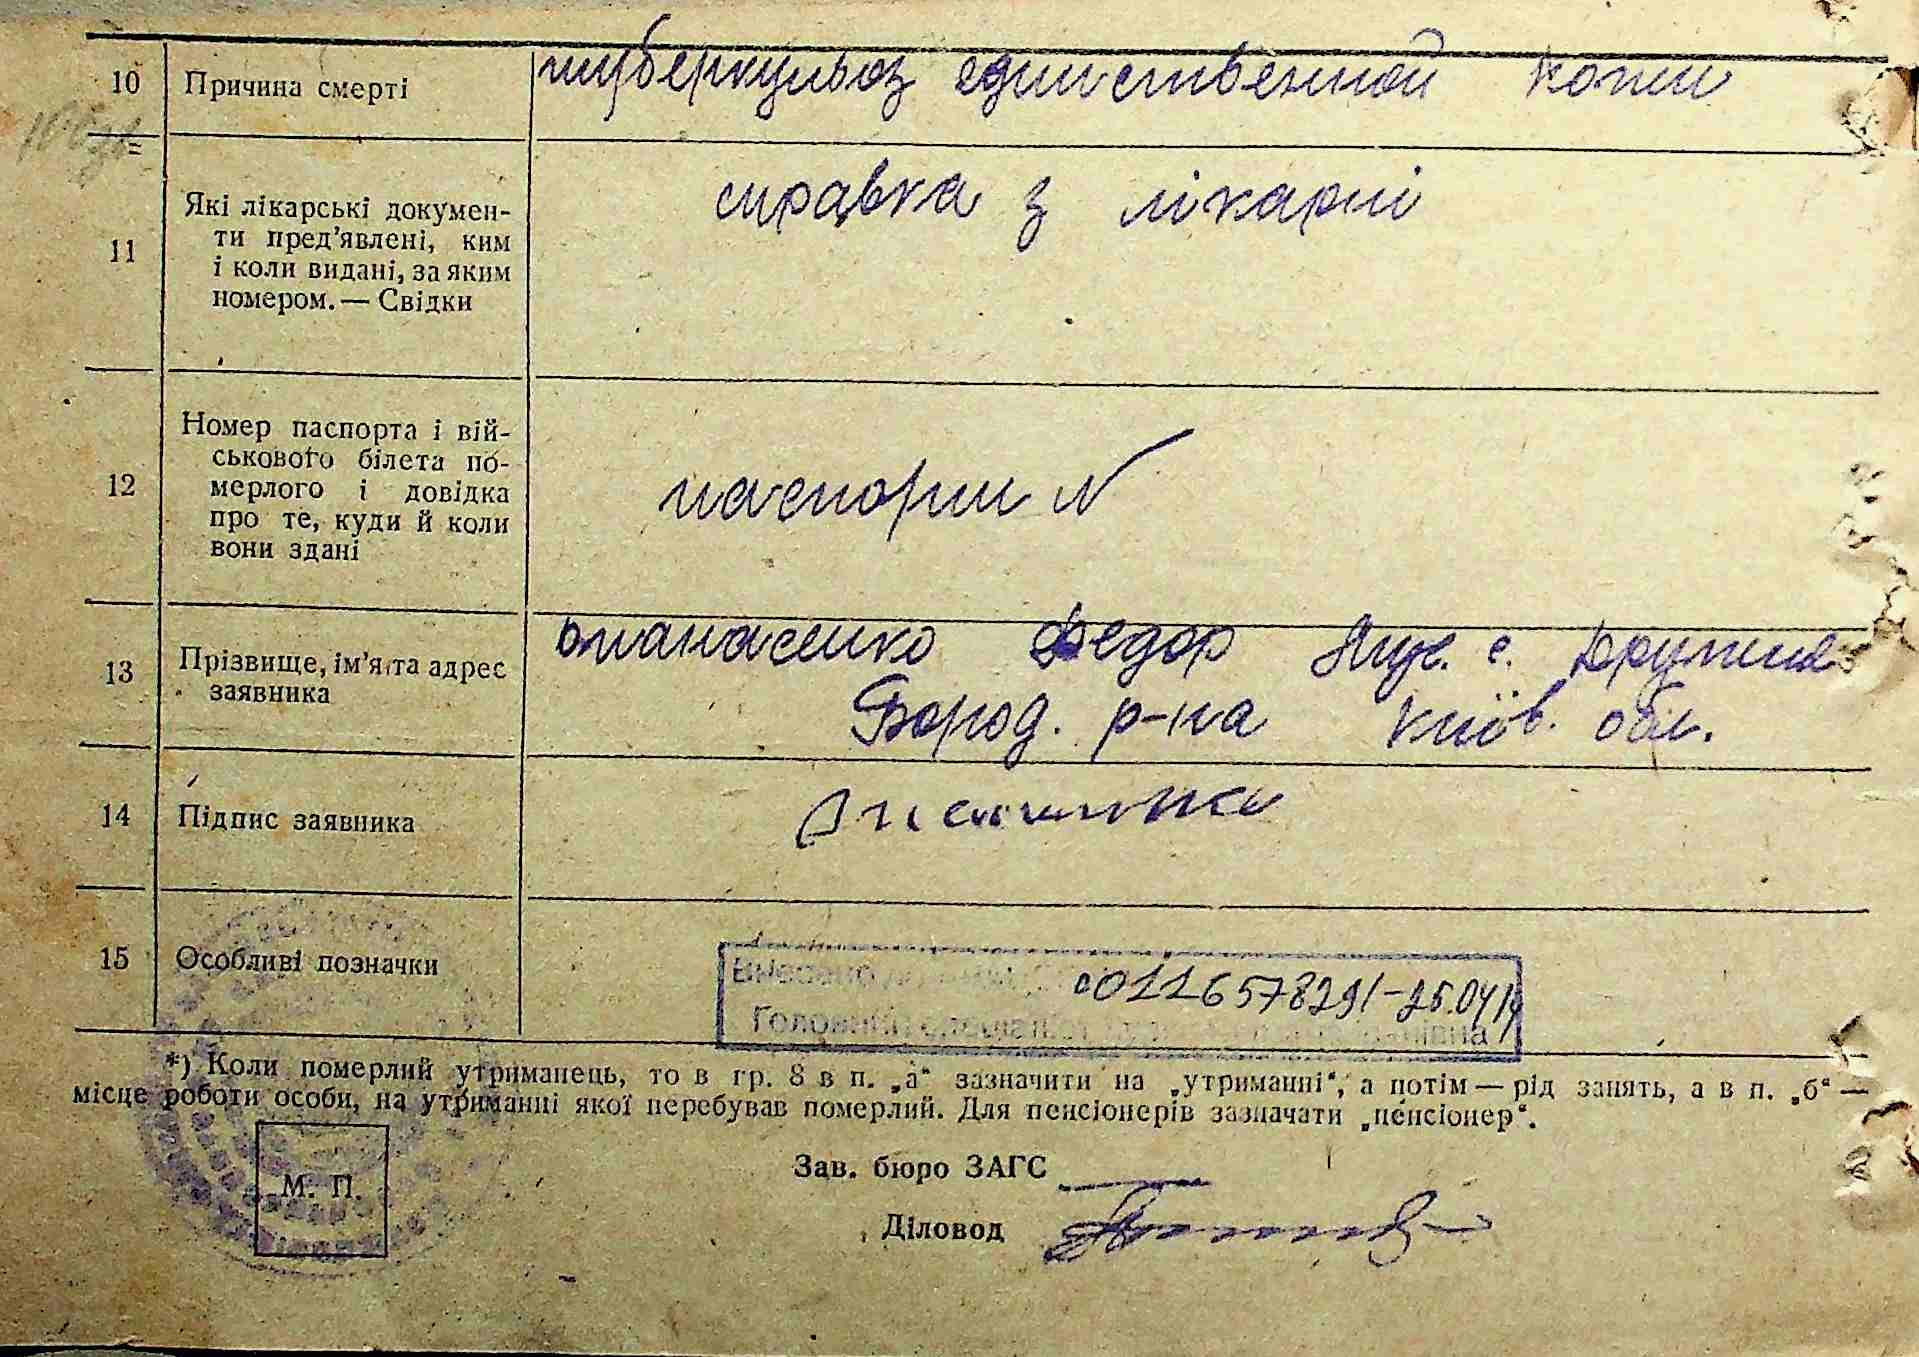 10 Причина смерті туберкульоз единственной
11 Які лікарські докумен-
ти пред’явлені, ким
і коли видані, за яким
номером. — Свідки
справка з лікарні
12 Номер паспорта і вій-
ськового білета по-
мерлого і довідка
про те, куди й коли
вони здані
паспорт №
13 Прізвище, ім’я та адрес
заявника
Федор с. Дружня
Бород. р-на Київ. обл.
14 Підпис заявника
15 Особливі позначки
Внесено
00116578291-25.04
Головний спеціаліст
*) Коли померлий утриманець, то в гр. 8 в п. „а“ зазначити на „утриманні“, а потім — рід занять, а в п. „б“ —
місце роботи особи, на утриманні якої перебував померлий. Для пенсіонерів зазначати „пенсіонер“.
М. П.
Зав. бюро ЗАГС
Діловод